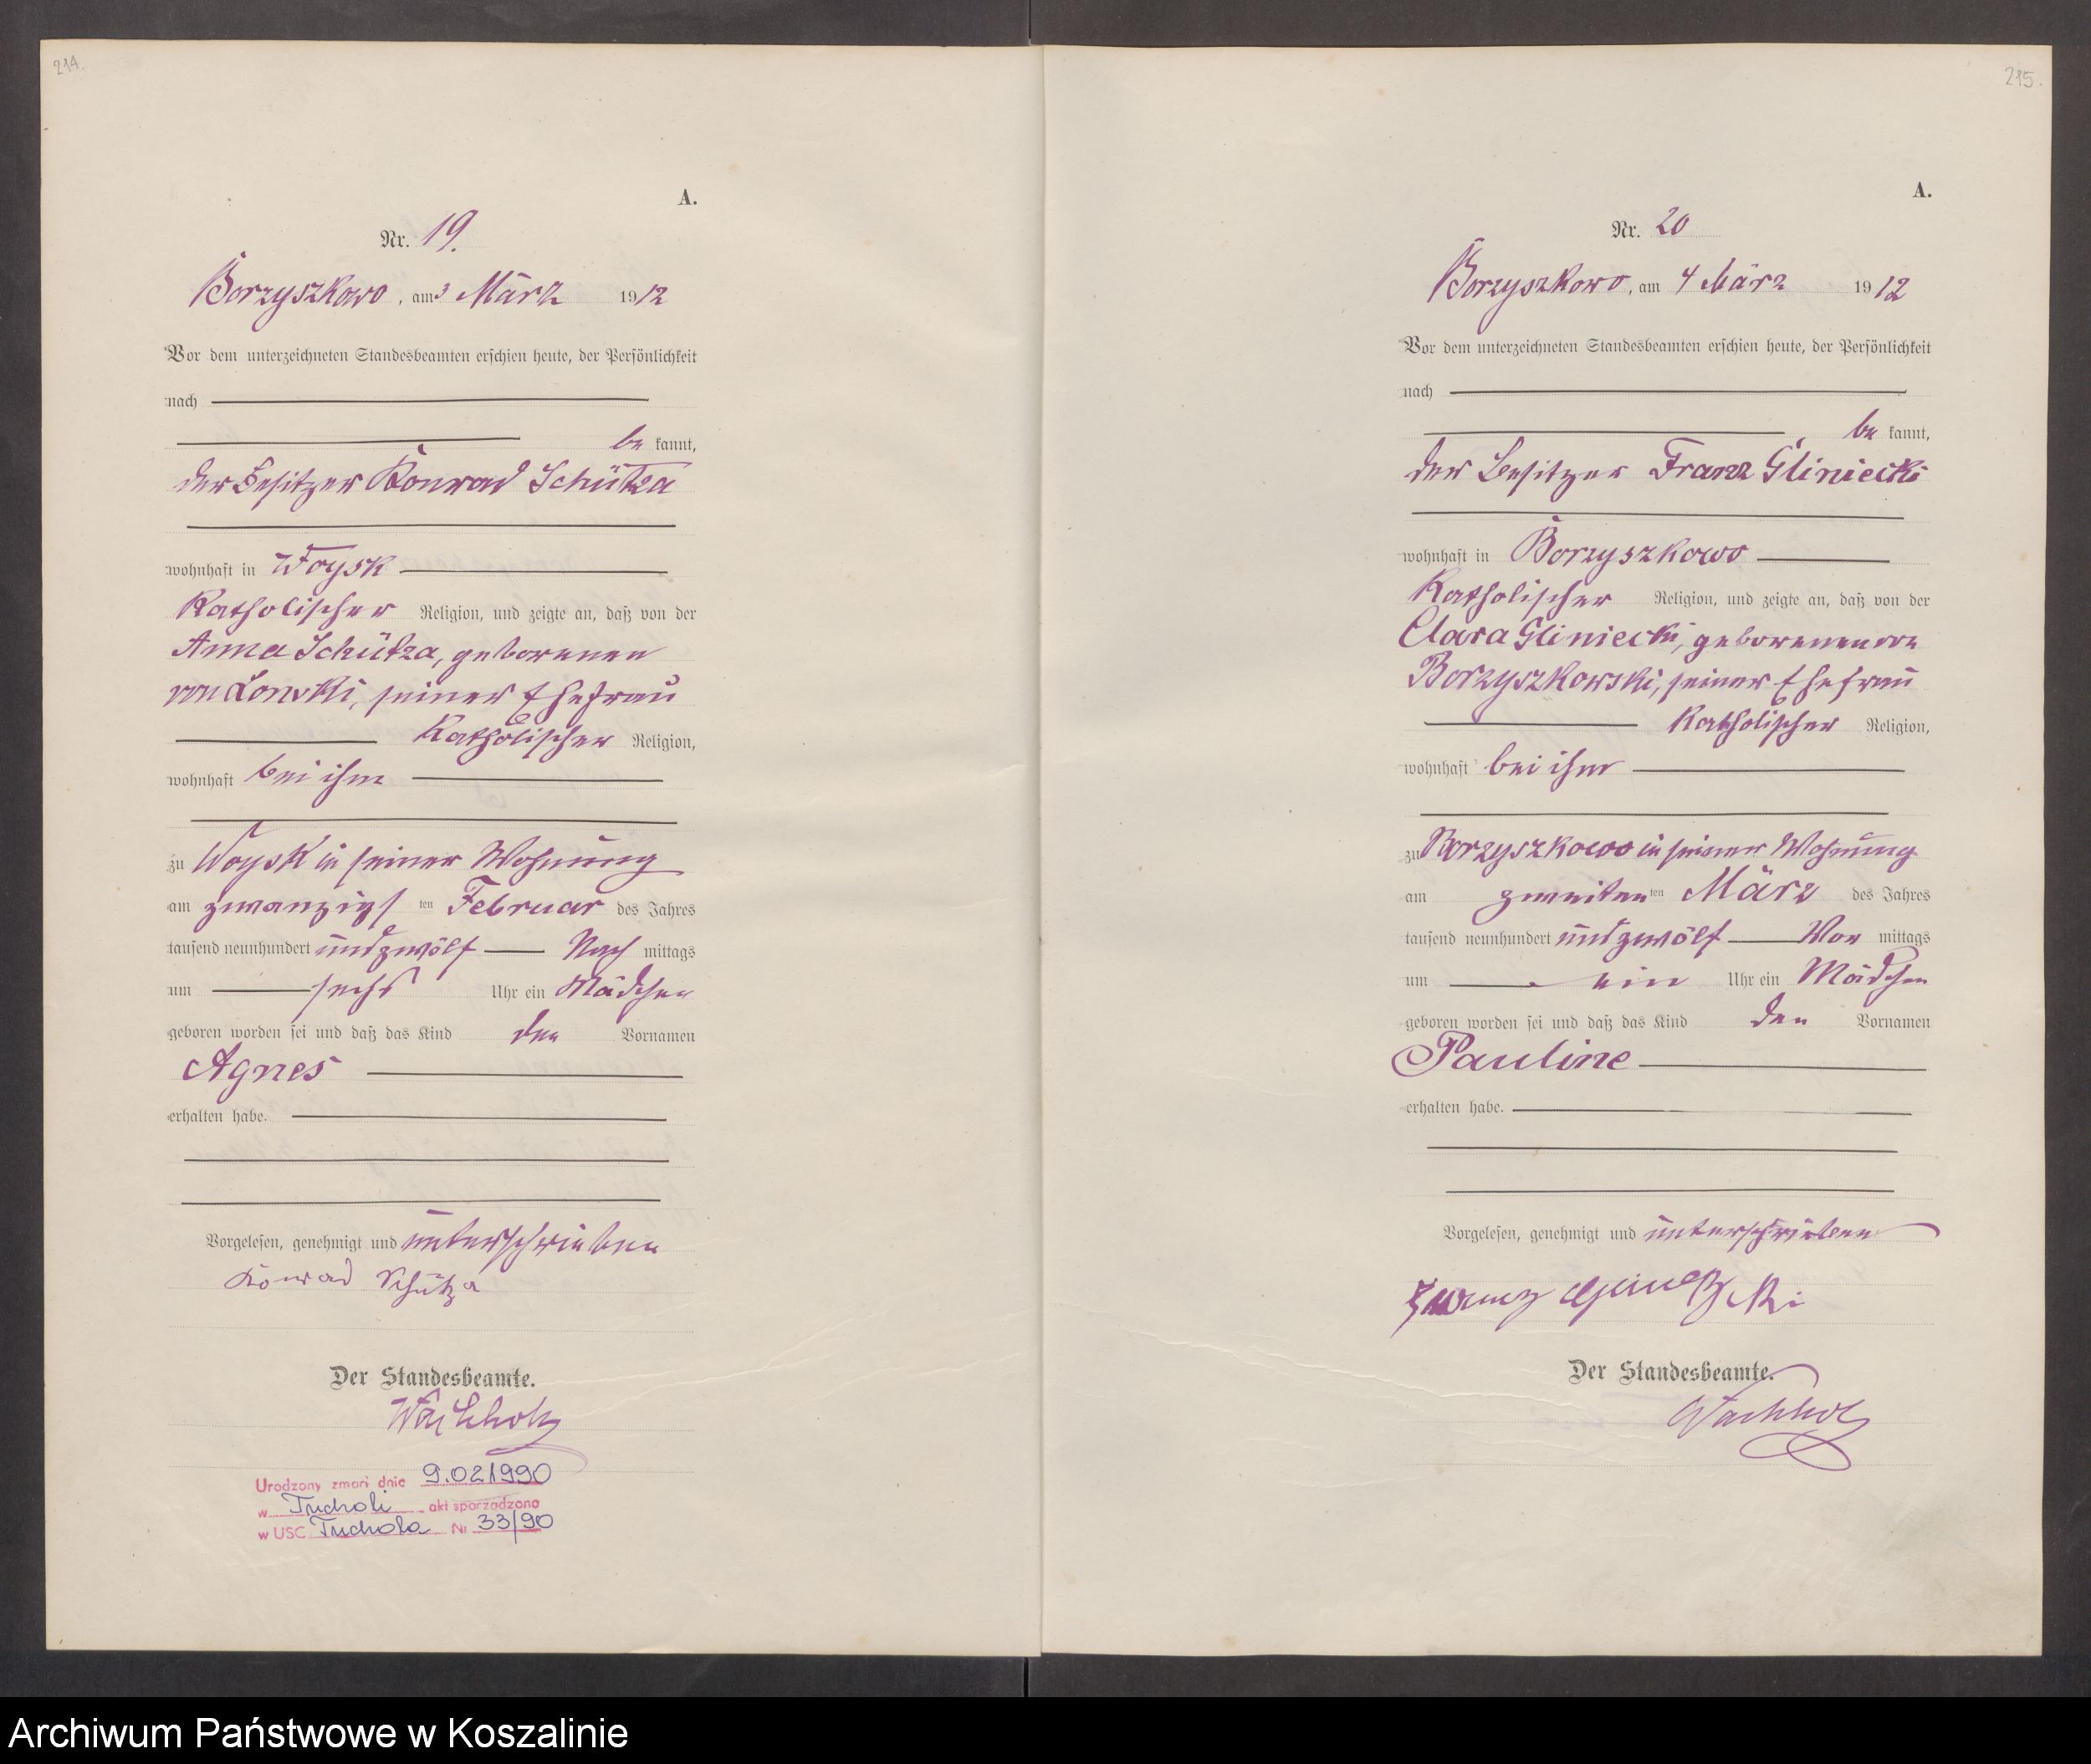 214.
A.
Nr. 19.
Borzyszkowo, am 3 März 1912
Vor dem unterzeichneten Standesbeamten erschien heute, der Persönlichkeit
nach
be kannt,
der Besitzer Konrad Schütza
wohnhaft in Woysk
Katholischer Religion, und zeigte an, daß von der
Anna Schütza, geborenen
von Lonski, seiner Ehefrau
Katholischer Religion,
wohnhaft bei ihm
zu Woysk in seiner Wohnung
am zwanzigs ten Februar des Jahres
tausend neunhundert und zwölf Nach mittags
um sechs Uhr ein Mädchen
geboren worden sei und daß das Kind den Vornamen
Agnes
erhalten habe.
Vorgelesen, genehmigt und unterschrieben
Konrad Schütza
Der Standesbeamte.
Wachholz
Urodzony zmarł dnia 9.02.1990
w Tucholi akt sporządzono
w USC Tuchola Nr 33/90
215.
A.
Nr. 20
Borzyszkowo, am 4 März 1912
Vor dem unterzeichneten Standesbeamten erschien heute, der Persönlichkeit
nach
be kannt,
der Besitzer Franz Gliniecki
wohnhaft in Borzyszkowo
Katholischer Religion, und zeigte an, daß von der
Clara Gliniecki, geborenen von
Borzyszkowski, seiner Ehefrau
Katholischer Religion,
wohnhaft bei ihm
zu Borzyszkowo in seiner Wohnung
am zweiten ten März des Jahres
tausend neunhundert und zwölf Vor mittags
um ein Uhr ein Mädchen
geboren worden sei und daß das Kind den Vornamen
Pauline
erhalten habe.
Vorgelesen, genehmigt und unterschrieben
Der Standesbeamte.
Wachholz
Archiwum Państwowe w Koszalinie